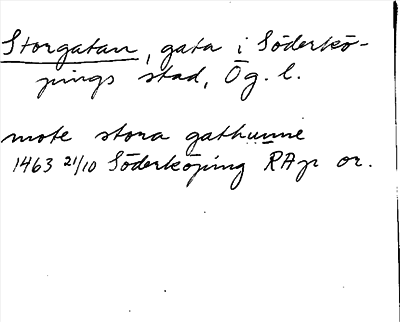 Storgatan, gata i Söderkö-
pings stad, Ög. l.
mote stora gathunne
1463 21/10 Söderköping RAp or.